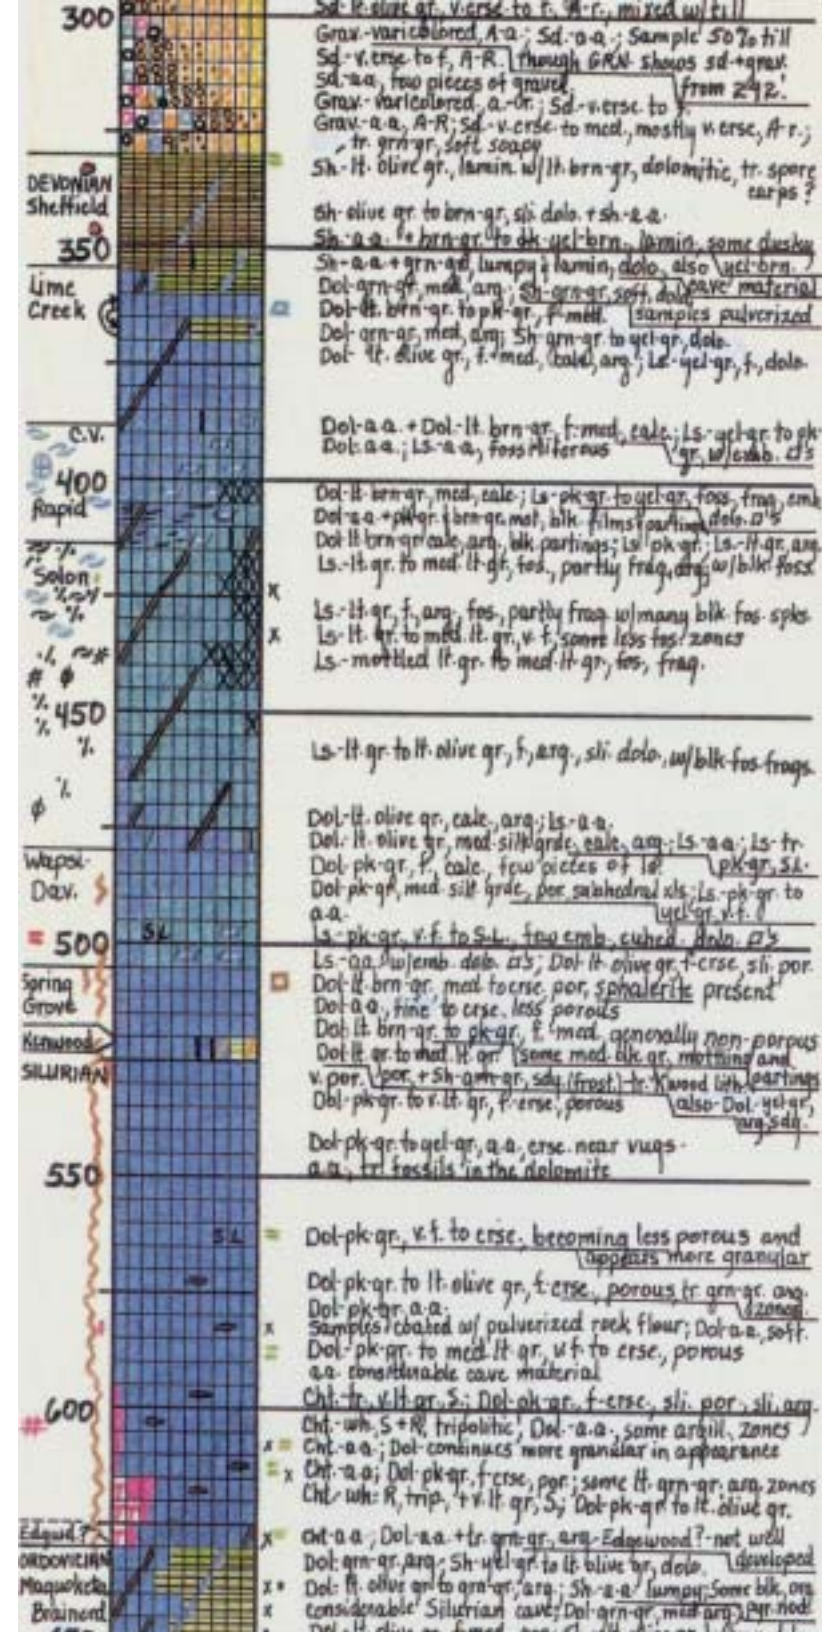 Sd-lt. olive gr, v. crse to f. A-r., mixed w/till
300
Grav-varicolored, A-a; Sd-a.a.; Sample 50% till
Sd-v.crse to f, A-R. though GRN shows sd+grav.
Sd-aa, few pieces of gravel from 292'.
Grav-varicolored, a-or; Sd-v.crse to f.
Grav-a.a, A-R; Sd-v.crse to med, mostly v.crse, A-r.;
tr. grn-gr, soft soapy
Sh-lt. olive gr., lamin. w/lt. brn-gr, dolomitic, tr. spore
carps?
DEVONIAN
Sheffield
Sh-olive gr. to brn-gr, sli dolo. + sh-a.a.
Sh-a.a. + brn-gr. to dk yel-brn., lamin, some dusky
350
Sh-a.a + grn-gr, lumpy + lamin, dolo, also yel-brn.
Lime
Creek
Dol-grn-gr, med, arg; Sh-grn-gr, soft, dolo cave material
Dol-lt. brn-gr. to pk-gr, f-med. samples pulverized
Dol-grn-gr, med, arg; Sh-grn-gr to yel-gr, dolo.
Dol-lt. olive gr, f.-med, calc, arg; Ls-yel-gr, f, dolo.
C.V.
Dol-a.a. + Dol-lt. brn-gr, f-med, calc.; Ls-yel-gr to pk-
Dol-a.a.; Ls-a.a, fossiliferous gr, w/emb. □'s
400
Rapid
Dol-lt brn-gr, med, calc; Ls-pk-gr. to yel-gr, foss, frag, emb
Dol-aa + pk-gr + brn-gr. mot, blk films + parting dolo. □'s
Dol-lt brn-gr calc, arg, blk partings; Ls pk-gr.; Ls-lt-gr, arg
Ls-lt-gr. to med. lt-gr, fos., partly frag, arg, w/blk foss
Solon
Ls-lt-gr, f., arg, fos, partly frag w/many blk fos spks
Ls-lt. gr. to med. lt. gr., v. f, some less fos. zones
Ls-mottled lt. gr. to med-lt-gr, fos, frag.
450
Ls-lt-gr. to lt. olive gr, f, arg., sli. dolo, w/blk fos frags
Dol-lt. olive gr, calc, arg; Ls-a.a.
Dol-lt. olive gr, med silt grde, calc, arg; Ls-a.a; Ls-tr.
Wapsi-
Dav.
Dol-pk-gr, f, calc, few pieces of ls pk-gr, S.L.
Dol-pk-gr, med silt grde, por, subhedral xls; Ls-pk-gr to
a.a. yel-gr v.f.
S.L
Ls-pk-gr, v.f. to S.L., few emb, euhed. dolo. □'s
500
Ls-aa w/emb dolo □'s; Dol lt. olive gr, f-crse, sli. por.
Spring
Grove
Dol-lt brn-gr, med to crse por, sphalerite present
Dol-a.a, fine to crse, less porous
Kenwood
Dol-lt. brn-gr. to pk-gr, f-med, generally non-porous
Dol-lt gr. to med. lt gr. some med. blk gr. mottling and
SILURIAN
v. por. por, + Sh-grn-gr, sdy (frost)-tr. Kwood lith. partings
Dol-pk-gr. to v. lt. gr., f-crse, porous also Dol-yel-gr,
arg, sdy.
Dol-pk-gr. to yel-gr, a.a, crse near vugs-
a.a, tr. fossils in the dolomite
550
S.L
Dol-pk-gr., v.f. to crse, becoming less porous and
appears more granular
Dol-pk-gr. to lt. olive gr, f-crse, porous, tr. grn-gr. arg.
Dol-pk-gr, a.a. zones.
Samples coated w/ pulverized rock flour; Dol-a.a, soft.
Dol-pk-gr. to med. lt gr, v.f. to crse, porous
a.a. considerable cave material
Cht-tr, v. lt gr, S.; Dol-pk-gr., f-crse, sli. por., sli, arg.
600
Cht-wh, S+R, tripolitic; Dol-a.a, some argill. zones
Cht-a.a; Dol-continues more granular in appearance
Cht-a.a; Dol pk-gr, f-crse, por; some lt. grn-gr. arg. zones
Cht-wh, R, trip, + v. lt gr, S; Dol-pk-gr to lt. olive gr.
Edgwd?
Cht-a.a; Dol-a.a. + tr. grn-gr, arg-Edgewood?-not well
developed
ORDOVICIAN
Dol-grn-gr, arg; Sh-yel-gr to lt olive gr, dolo.
Maquoketa
Dol-lt. olive gr to grn-gr, arg; Sh-a.a lumpy; Some blk, org
Brainard
considerable Silurian cave; Dol-grn-gr, med arg pyr. nod.